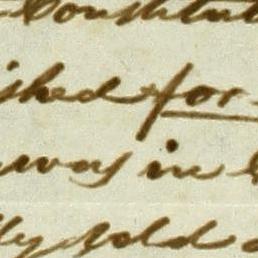 Constitut
ished for
was in
lly told a